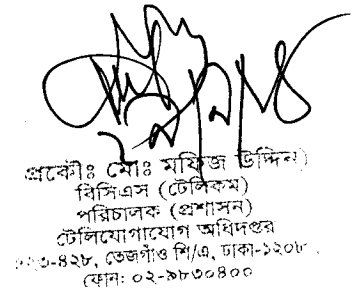 প্রকৌঃ মোঃ মফিজ উদ্দিন
বিসিএস (টেলিকম)
পরিচালক (প্রশাসন)
টেলিযোগাযোগ অধিদপ্তর
৪২৮, তেজগাঁও শি/এ, ঢাকা-১২০৮
ফোন: ০২-৯৮৩০৪০০